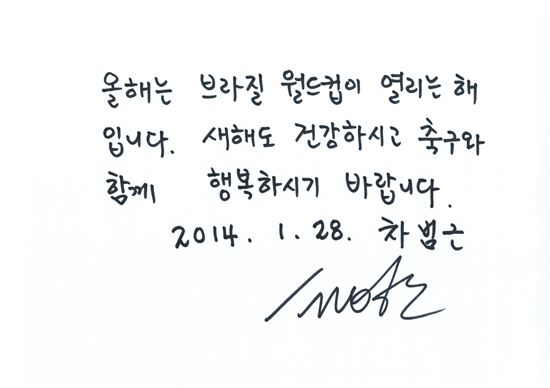 올해는 브라질 월드컵이 열리는 해
입니다. 새해도 건강하시고 축구와
함께 행복하시기 바랍니다.
2014. 1. 28. 차범근